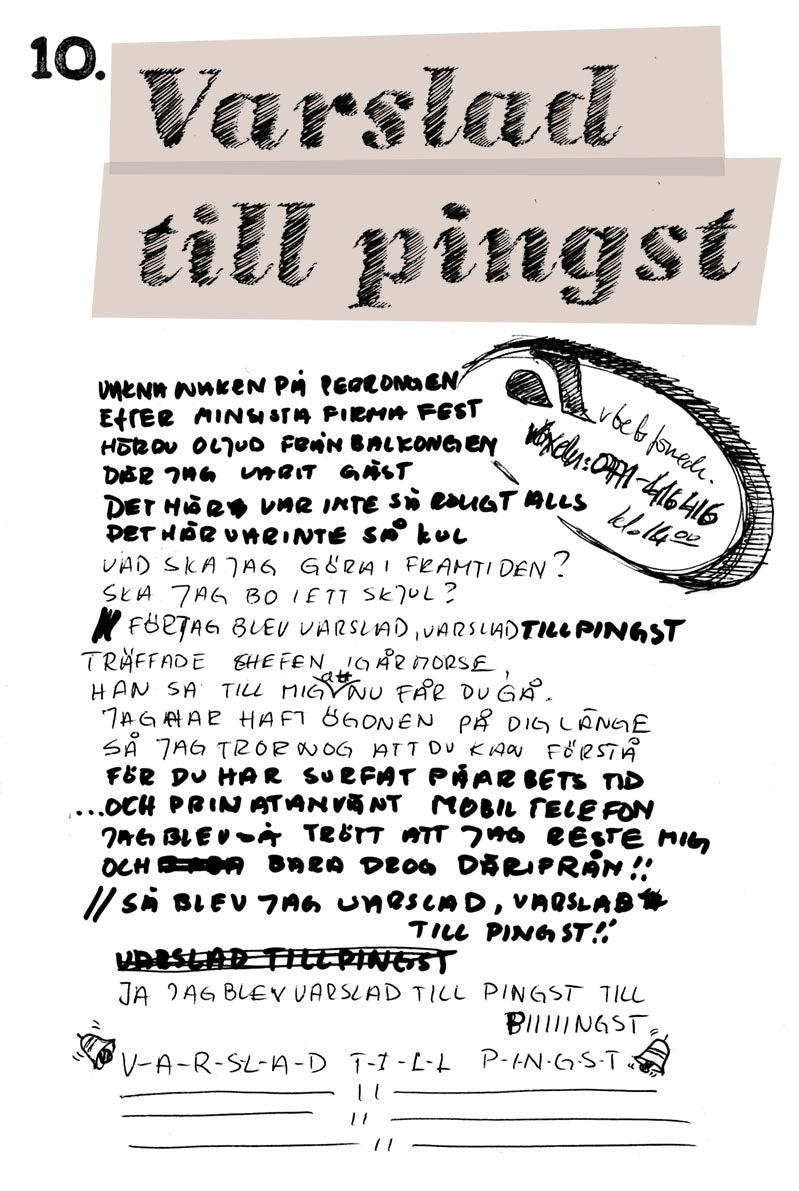 10.
Varslad
till pingst
VAKNA NAKEN PÅ PERRONGEN
EFTER MIN SISTA FIRMA FEST
HÖR DU OLJUD FRÅN BALKONGEN
DÄR JAG VARIT GÄST
DET HÄR VAR INTE SÅ ROLIGT ALLS
DET HÄR VAR INTE SÅ KUL
VAD SKA JAG GÖRA I FRAMTIDEN?
SKA JAG BO I ETT SKJUL?
FÖR JAG BLEV VARSLAD, VARSLAD TILL PINGST
TRÄFFADE CHEFEN IGÅR MORSE,
HAN SA TILL MIG att NU FÅR DU GÅ.
JAG HAR HAFT ÖGONEN PÅ DIG LÄNGE
SÅ JAG TROR NOG ATT DU KAN FÖRSTÅ
FÖR DU HAR SURFAT PÅ ARBETS TID
...OCH PRIVAT ANVÄNT MOBIL TELEFON
JAG BLEV SÅ TRÖTT ATT JAG RESTE MIG
OCH BARA DROG DÄRIFRÅN!!
// SÅ BLEV JAG VARSLAD, VARSLAD
TILL PINGST!!
VARSLAD TILL PINGST
JA JAG BLEV VARSLAD TILL PINGST TILL
PIIIIINGST
V-A-R-SL-A-D T-I-L-L P-I-N-G-S-T
Arbetsförmedl.
växeln: 0771-416 416
kl. 14 00